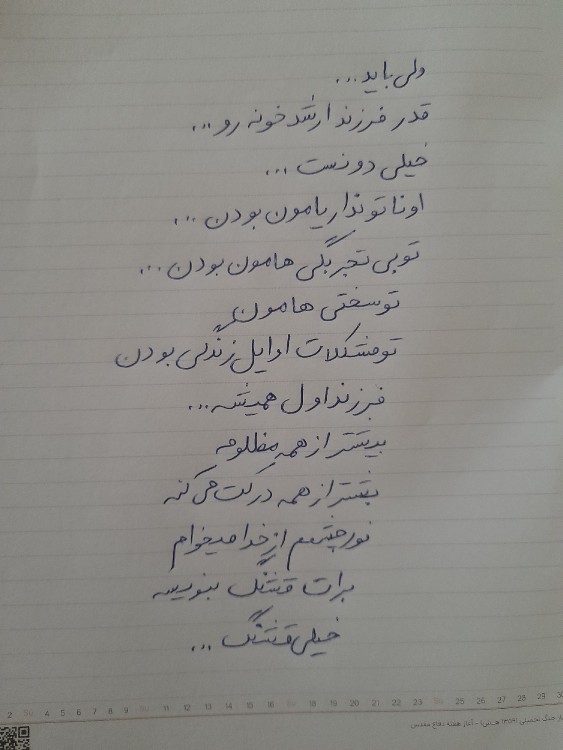 ولی باید...
قدر فرزند ارشد خونه رو...
خیلی دونست...
اونا تو نداریامون بودن...
تو بی تجربگی هامون بودن...
تو سختی هامون
تو مشکلات اوایل زندگی بودن
فرزند اول همیشه...
بیشتر از همه مظلومه
بیشتر از همه درکت می کنه
نورچشمم از خدا میخوام
برات قشنگ بنویسه
خیلی قشنگ...
2 3 4 5 6 7 8 9 10 11 12 13 14 15 16 17 18 19 20 21 22 23 24 25 26 27 28 29 30
آغاز هفته دفاع مقدس